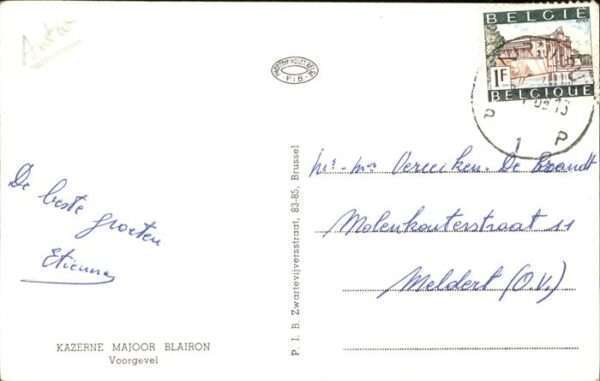 BELGIE
1F
BELGIQUE
P 1 P
De beste
groeten
Etienne
Mr - Mm Vereecken. De Brandt
Molenkouterstraat 11
Meldert (O.V.)
P. I. B. Zwartevijversstraat, 83-85, Brussel
KAZERNE MAJOOR BLAIRON
Voorgevel